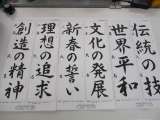 伝統の技
世界平和
文化の発展
新春の誓い
理想の追求
創造の精神